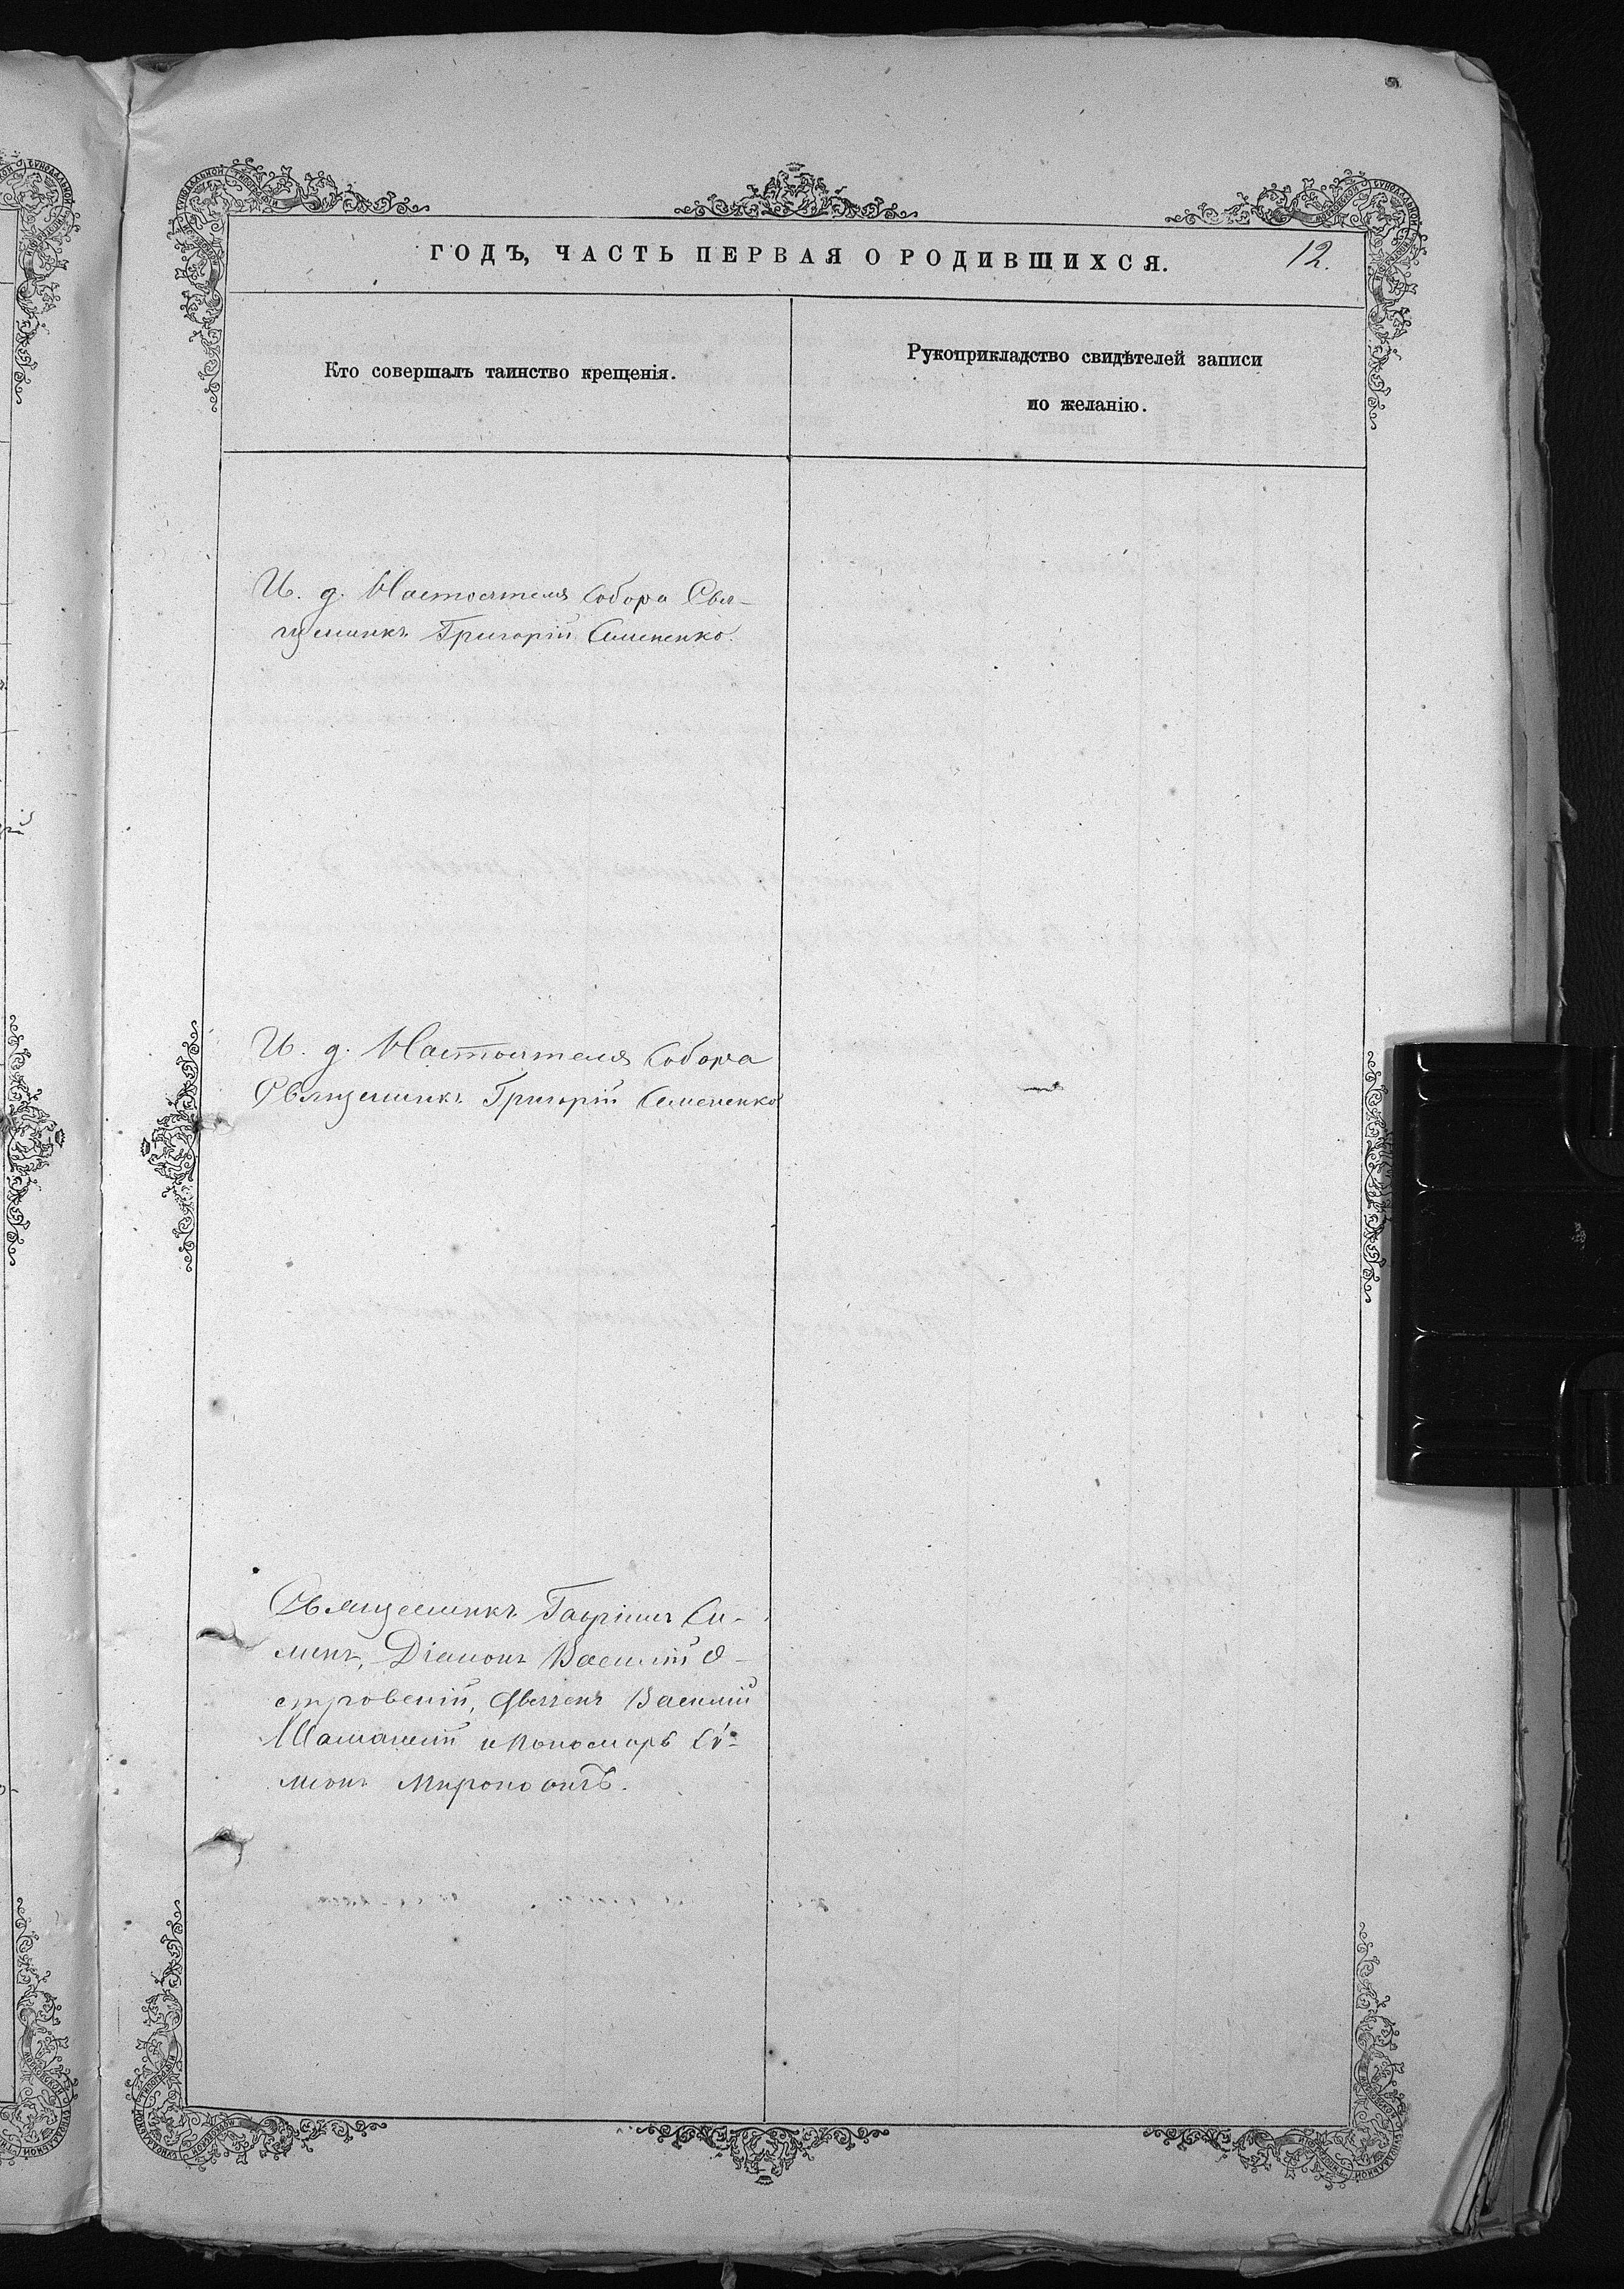 ГОДЪ, ЧАСТЬ ПЕРВАЯ О РОДИВШИХСЯ.
12.
Кто совершалъ таинство крещенія.
Рукоприкладство свидѣтелей записи
по желанію.
И. д. Настоятеля Собора Свя-
щенникъ Григорій Семененко.
И. д. Настоятеля Собора
Священникъ Григорій Семененко
Священникъ Гавріилъ Си-
Діаконъ Василій О-
стровскій, Василій
и Пономарь Сѵ-
меонъ